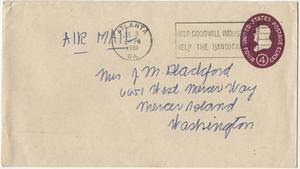 AIR MAIL
ATLANTA
GA.
HELP GOODWILL INDUS
HELP THE HANDICAP
UNITED STATES POSTAGE
FOUR CENTS
4
Mrs J. M. Blackford
6651 West Mercer Way
Mercer Island
Washington